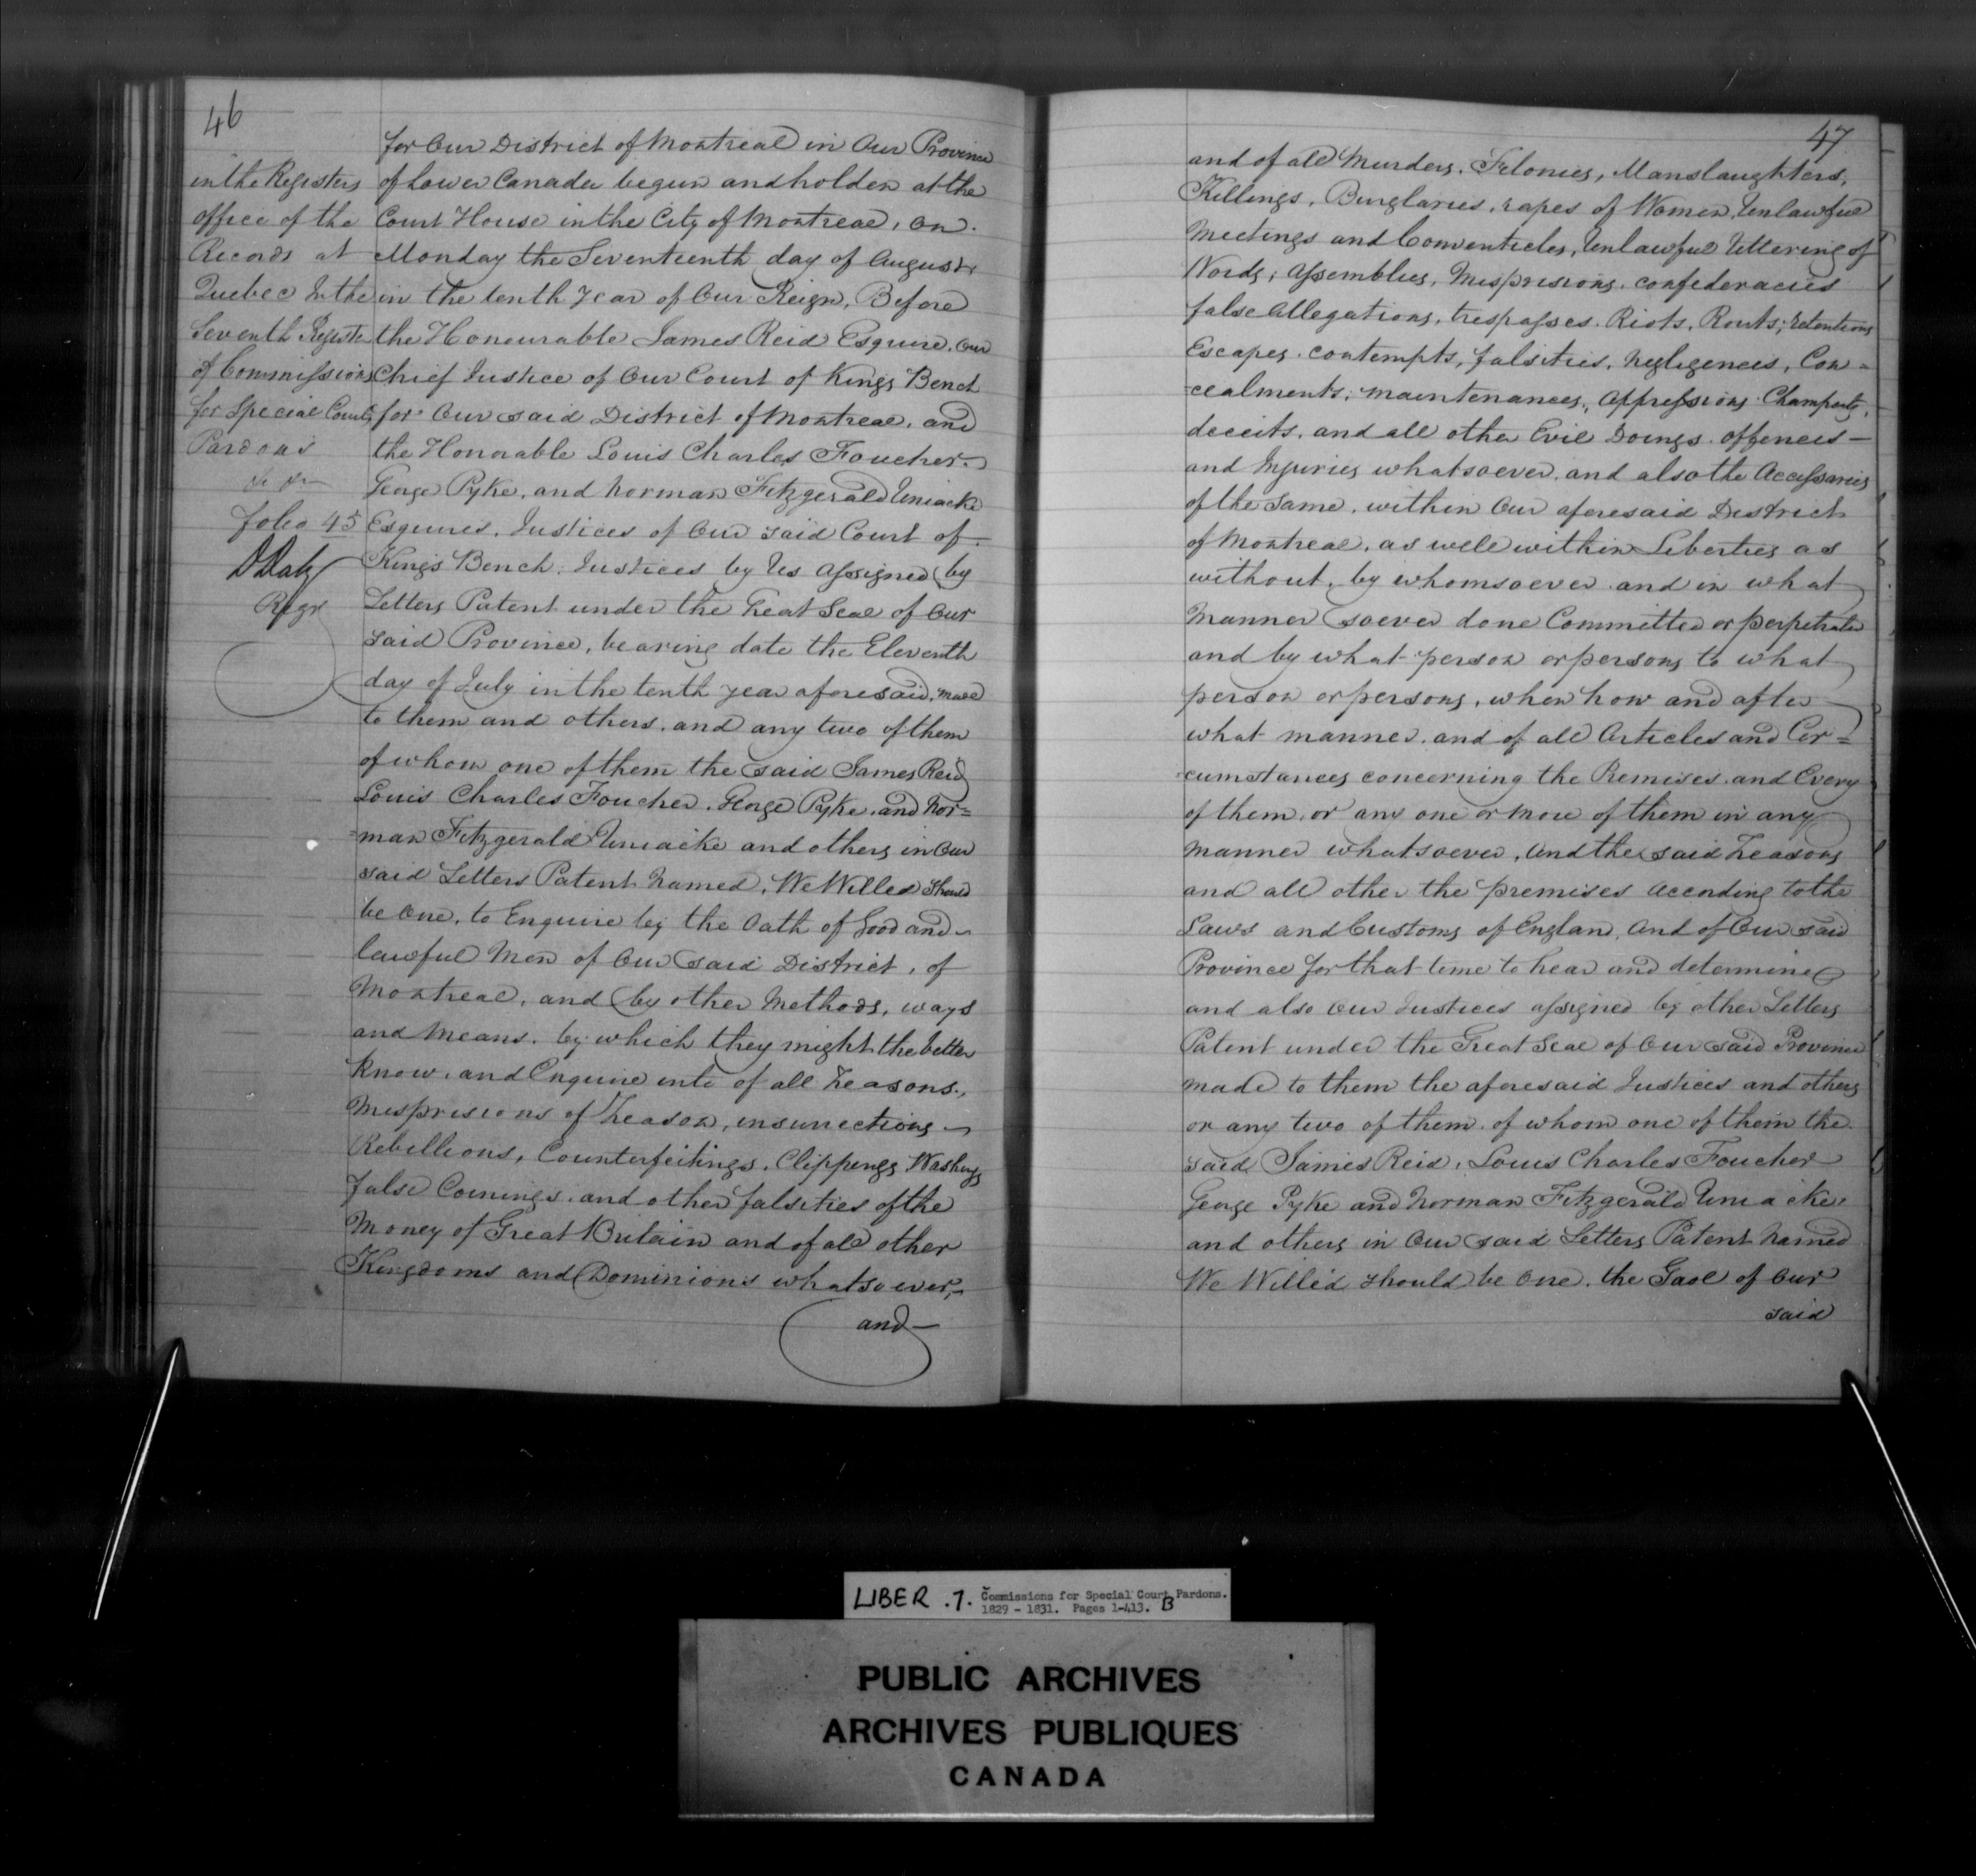 46
in the Registers
office of the
Records at
Quebec In the
Seventh Registe
of Commissions
for Special Courts
Pardons
&c &c
folio 45
D Daly
Regr
for Our District of Montreal in Our Province
of Lower Canada begun and holden at the
Court House in the City of Montreal, on
Monday the Seventeenth day of August
in the tenth Year of Our Reign, Before
the Honourable James Reid Esquire, Our
Chief Justice of Our Court of Kings Bench
for Our said District of Montreal, and
the Honorable Louis Charles Foucher
George Pyke, and Norman Fitzgerald Uniacke
Esquires, Justices of Our said Court of
Kings Bench, Justices by Us assigned by
Letters Patent under the Great Seal of Our
said Province, bearing date the Eleventh
day of July in the tenth year aforesaid, made
to them and others, and any two of them
of whom one of them the said James Reid
Louis Charles Foucher, George Pyke, and Nor=
=man Fitzgerald Uniacke and others in Our
said Letters Patent Named, We Willed should
be One, to Enquire by the Oath of Good and
lawful Men of Our said District, of
Montreal, and by other Methods, ways
and Means, by which they might the better
Know, and Enquire into of all Treasons,
Misprisions of Treason, insurrections
Rebellions, Counterfeitings, Clippings Washings
false Coinings, and other falsities of the
Money of Great Britain and of all other
Kingdoms and Dominions whatsoever,
and
47
and of all Murders, Felonies, Manslaughters,
Killings, Burglaries, rapes of Women, Unlawful
Meetings and Conventicles, Unlawful Uttering of
Words, Assemblies, Misprisions, confederacies
false Allegations, trespasses, Riots, Routs, retentions
Escapes, contempts, falsities, Negligences, Con=
=cealments, maintenances, Oppressions Champarty,
deceits, and all other Evil Doings, offences
and Injuries whatsoever, and also the Accessaries
of the Same, within Our aforesaid District
of Montreal, as well within Liberties as
without, by whomsoever and in what
Manner soever done Committed or perpetrated
and by what person or persons to what
person or persons, when how and after
what manner, and of all Articles and Cir=
=cumstances concerning the Premises and Every
of them, or any one or More of them in any
Manner whatsoever, And the said Treasons
and all other the premises According to the
Laws and Customs of England, And of Our said
Province for that time to hear and determine
and also Our Justices assigned by other Letters
Patent under the Great Seal of Our said Province
made to them the aforesaid Justices and others
or any two of them of whom one of them the
said James Reid, Louis Charles Foucher
George Pyke and Norman Fitzgerald Uniacke
and others in Our said Letters Patent Named
We Willed should be One, the Gaol of Our
said
LIBER .7. Commissions for Special Court Pardons.
1829 - 1831. Pages 1-413. B
PUBLIC ARCHIVES
ARCHIVES PUBLIQUES
CANADA